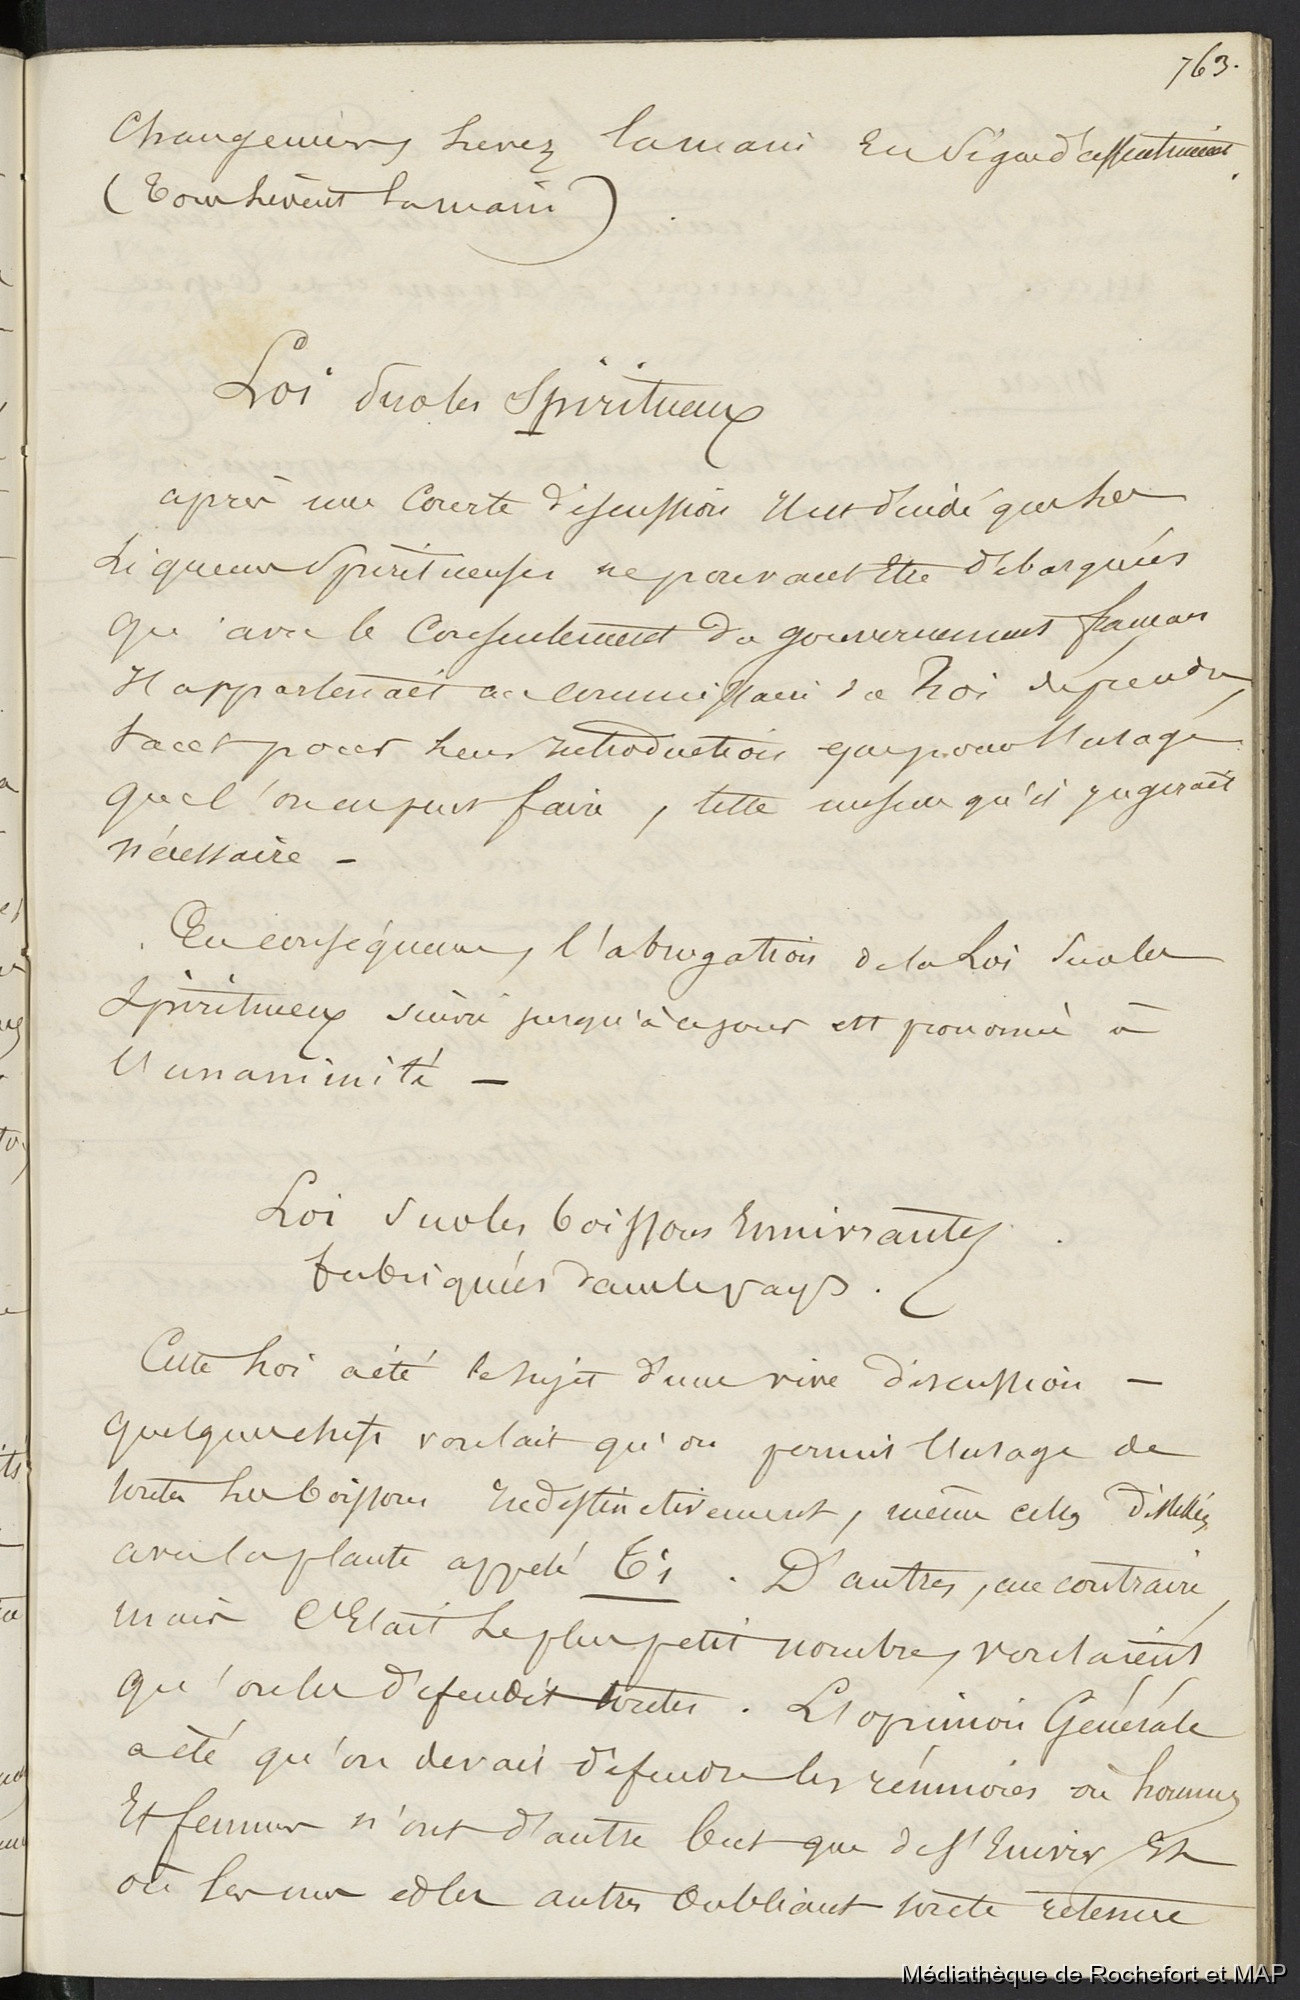 763.
Changemens, levez la main en signe d'assentiment.
(Tous lèvent la main).
Loi sur les Spiritueux
après une courte discussion il est décidé que les
liqueurs spiritueuses ne pouvant être débarquées
qu'avec le consentement du gouvernement français
il appartenait au commissaire du Roi de prendre,
tant pour leur introduction que pour l'usage
que l'on en peut faire, telle mesure qu'il jugerait
nécessaire –
En conséquence, l'abrogation de la Loi sur les
spiritueux suivie jusqu'à ce jour est prononcée à
l'unanimité –
Loi sur les boissons Ennivrantes
fabriquées dans le pays.
Cette loi a été le sujet d'une vive discussion –
quelques chefs voulait qu'on permit l'usage de
toutes les boissons indistinctivement, même celles distillées
avec la plante appelé Ti. D'autres, au contraire,
mais c'Etait le plus petit nombre, voulaient
qu'on les défendit toutes. L'opinion Générale
a été qu'on devait défendre les réunions où hommes
Et femmes n'ont d'autre but que de s'Enivrer Et
où les uns et les autres oubliant toute retenue
Médiathèque de Rochefort et MAP